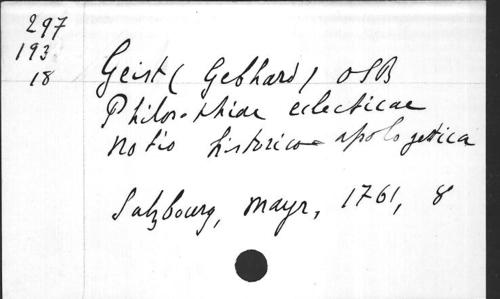 297
193
18
Geist (Gebhard) OSB
Philosophiae eclecticae
notio historico-apologetica
Salzbourg, Mayr, 1761, 8